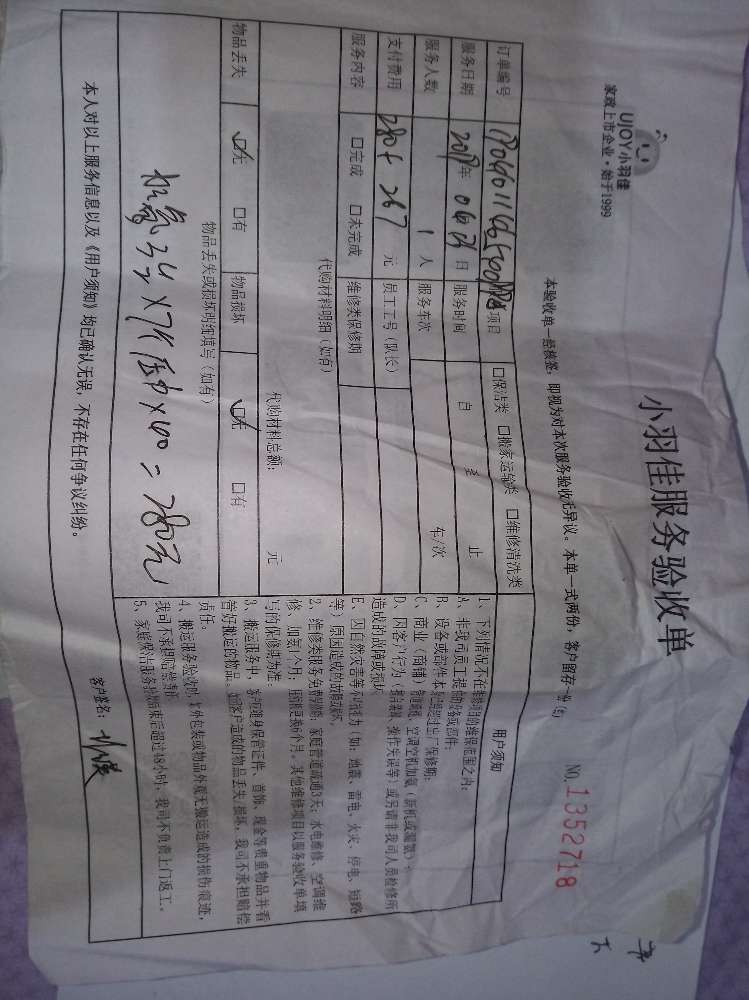 UJOY小羽佳
家政上市企业·始于1999
小羽佳服务验收单
本验收单一经核签，即视为对本次服务验收无异议。本单一式两份，客户留存一份
NO.1352718
订单编号
项目 □保洁类 □搬家运输类 □维修清洗类
服务日期 年 日 服务时间 自 至 止
服务人数 1 人 服务车次 车/次
支付费用 280+267 元 员工工号(队长)
服务内容 □完成 □未完成 维修类保修期
代购材料明细(如有)
代购材料总额： 元
物品丢失 ☑无 □有 物品损坏 ☑无 □有
物品丢失或损坏明细填写(如有)
×40=280元
本人对以上服务信息以及《用户须知》均已确认无误，不存在任何争议纠纷。
用户须知
1、下列情况不在维修项目的维保范围之内：
A、非我司员工提供的设备或部件；
B、设备或部件本身已超过出厂保修期；
C、商业(商铺)
D、因客户行为 操作失误等)或另请非我司人员检修所
造成的故障或损坏
E、因自然灾害等不可抗力(如：地震、雷电、火灾、停电、短路
等)原因造成的故障或损坏。
2、维修类服务免费保修期：家庭管道疏通3天；水电维修、空调维
修、加氨1个月， 6个月。其他维修项目以服务验收单填
写的保修期为准。
3、搬运服务中，客户应随身保管证件、首饰、现金等贵重物品并看
管好搬运的物品。如因客户造成的物品丢失、损坏，我司不承担赔偿
责任。
4、搬运服务验收时，外包装或物品外观无搬运造成的损伤痕迹，
我司不承担赔偿责任。
5、家庭保洁服务结束后超过48小时，我司不负责上门返工。
客户签名：